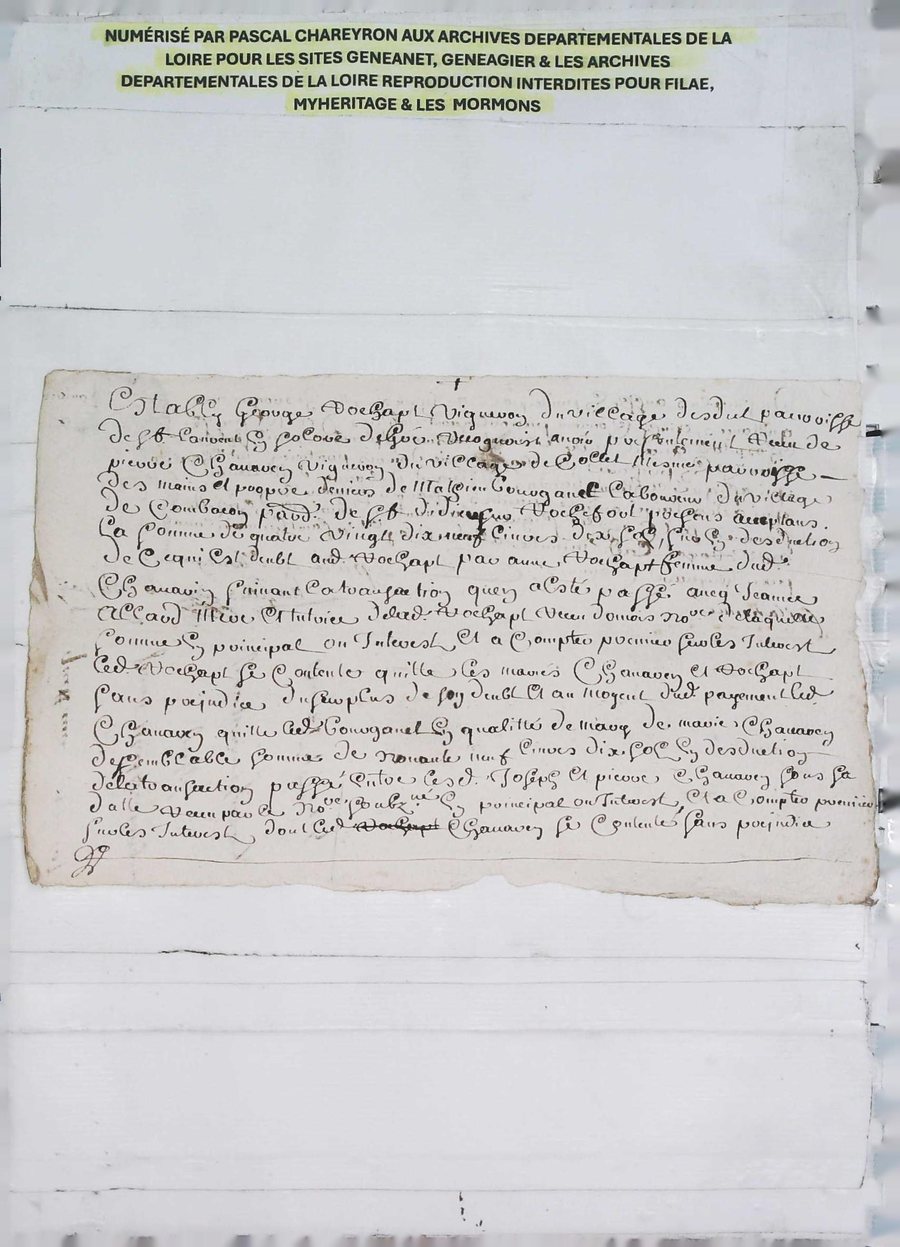 NUMÉRISÉ PAR PASCAL CHAREYRON AUX ARCHIVES DEPARTEMENTALES DE LA
LOIRE POUR LES SITES GENEANET, GENEAGIER & LES ARCHIVES
DEPARTEMENTALES DE LA LOIRE REPRODUCTION INTERDITES POUR FILAE,
MYHERITAGE & LES MORMONS
Estably George Rochapt Vigneron du village parroisse
de St Laurent En Solore recognoist avoir presentement Receu de
pierre Chanavey Vigneron du village de Collet Mesme parroisse
des mains et propre deniers de Bouganet Laboureur du village
de Combacon parro. de St didier Rochefort presens
La somme de quatre Vingt dix livres dix sols En desduction
de Ce qui Est deubt aud Rochapt par anne Rochapt femme dud.
Chanavey suivant La transaction quen a Esté passé aveq Jeanne
Allard Mere Et tutrice delad. Rochapt
somme En principal ou Interest Et a Compter premier sur les Interest
Led. Rochapt se Contente quitte les mariés Chanavey et Rochapt
sans prejudice du surplus de son deubt Et au moyent dud. payement Led.
Chanavey quitte led. Bouganet En qualitté de mary de marie Chanavey
de semblable somme de Nonante neuf livres dix sols En desduction
de la transaction passé Entre lesd. Joseph Et pierre Chanavey
Receu par le no.re soubz.né En principal ou Interest, Et a Compter premier
sur les Interest dont led. Rochapt Chanavey se Contente sans prejudice